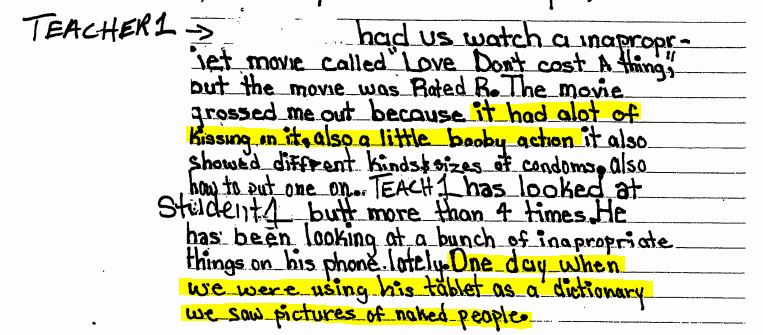 TEACHER1 → had us watch a inapropr-
iet movie called "Love Don't cost A thing",
but the movie was Rated R. The movie
grossed me out because it had alot of
kissing in it, also a little booby action it also
showed diffrent kinds & sizes of condoms, also
how to put one on.. TEACH1 has looked at
Student1 butt more than 4 times. He
has been looking at a bunch of inapropriate
things on his phone lately. One day when
we were using his tablet as a dictionary
we saw pictures of naked people.